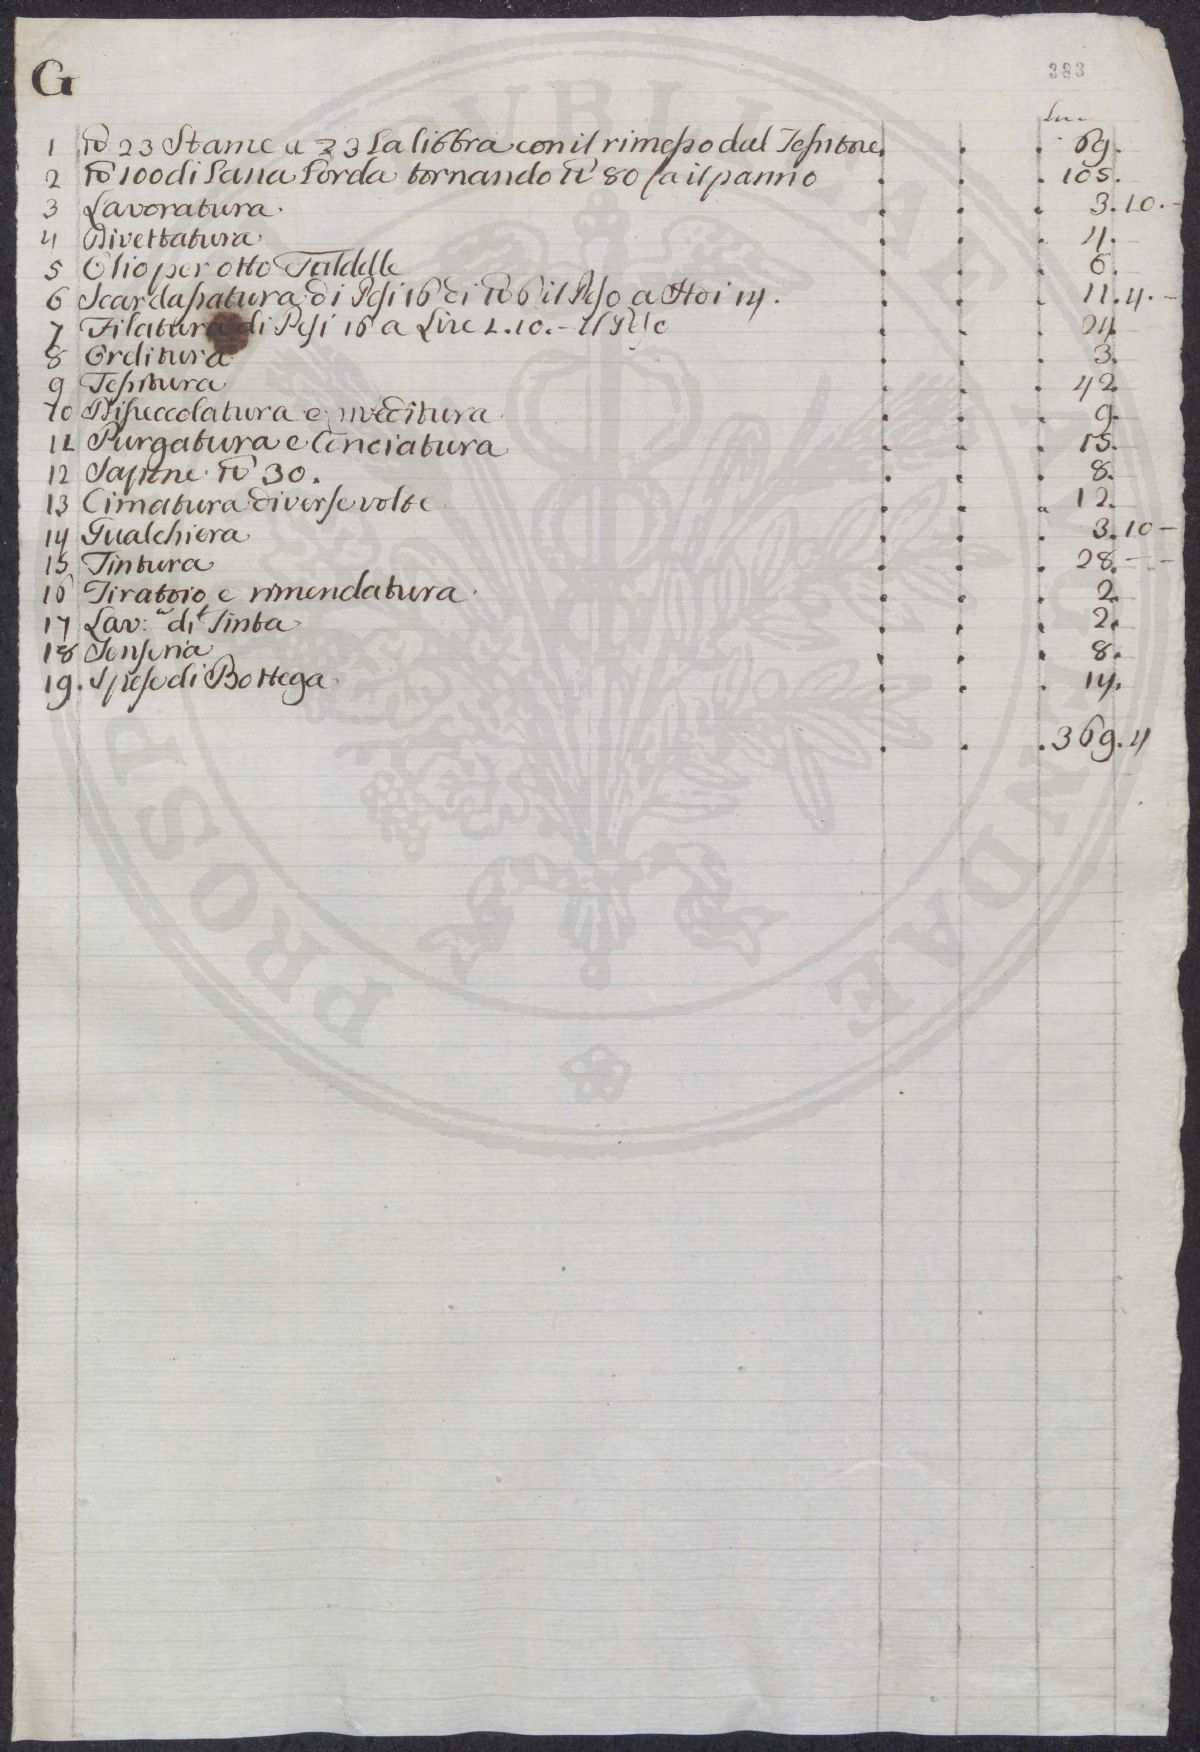 G
383
Lire
1 lb 23 Stame a £ 3 La libbra con il rimesso dal Tessitore 69.
2 lb 100 di Lana Lorda tornando lb 80 fa il panno 105.
3 Lavoratura 3.10.-
4 Divettatura 4.
5 Olio per otto Faldelle 6.
6 Scardassatura di Pesi 16 di lb 6 il Peso a Soldi 14. 11.4.-
7 Filatura di Pesi 16 a Lire 1.10.- il Peso 24
8 Orditura 3.
9 Tessitura 42
10 Riveditura 9.
11 Purgatura e Conciatura 15.
12 Sapone lb 30. 8.
13 Cimatura diverse volte 12.
14 Gualchiera 3.10-
15 Tintura 28.--
16 Tiratoio e rimendatura 2.
17 Lav:a di Tinta 2.
18 Senseria 8.
19. Spese di Bottega 14.
369.4
PROSP PVBLICAE AVGENDAE